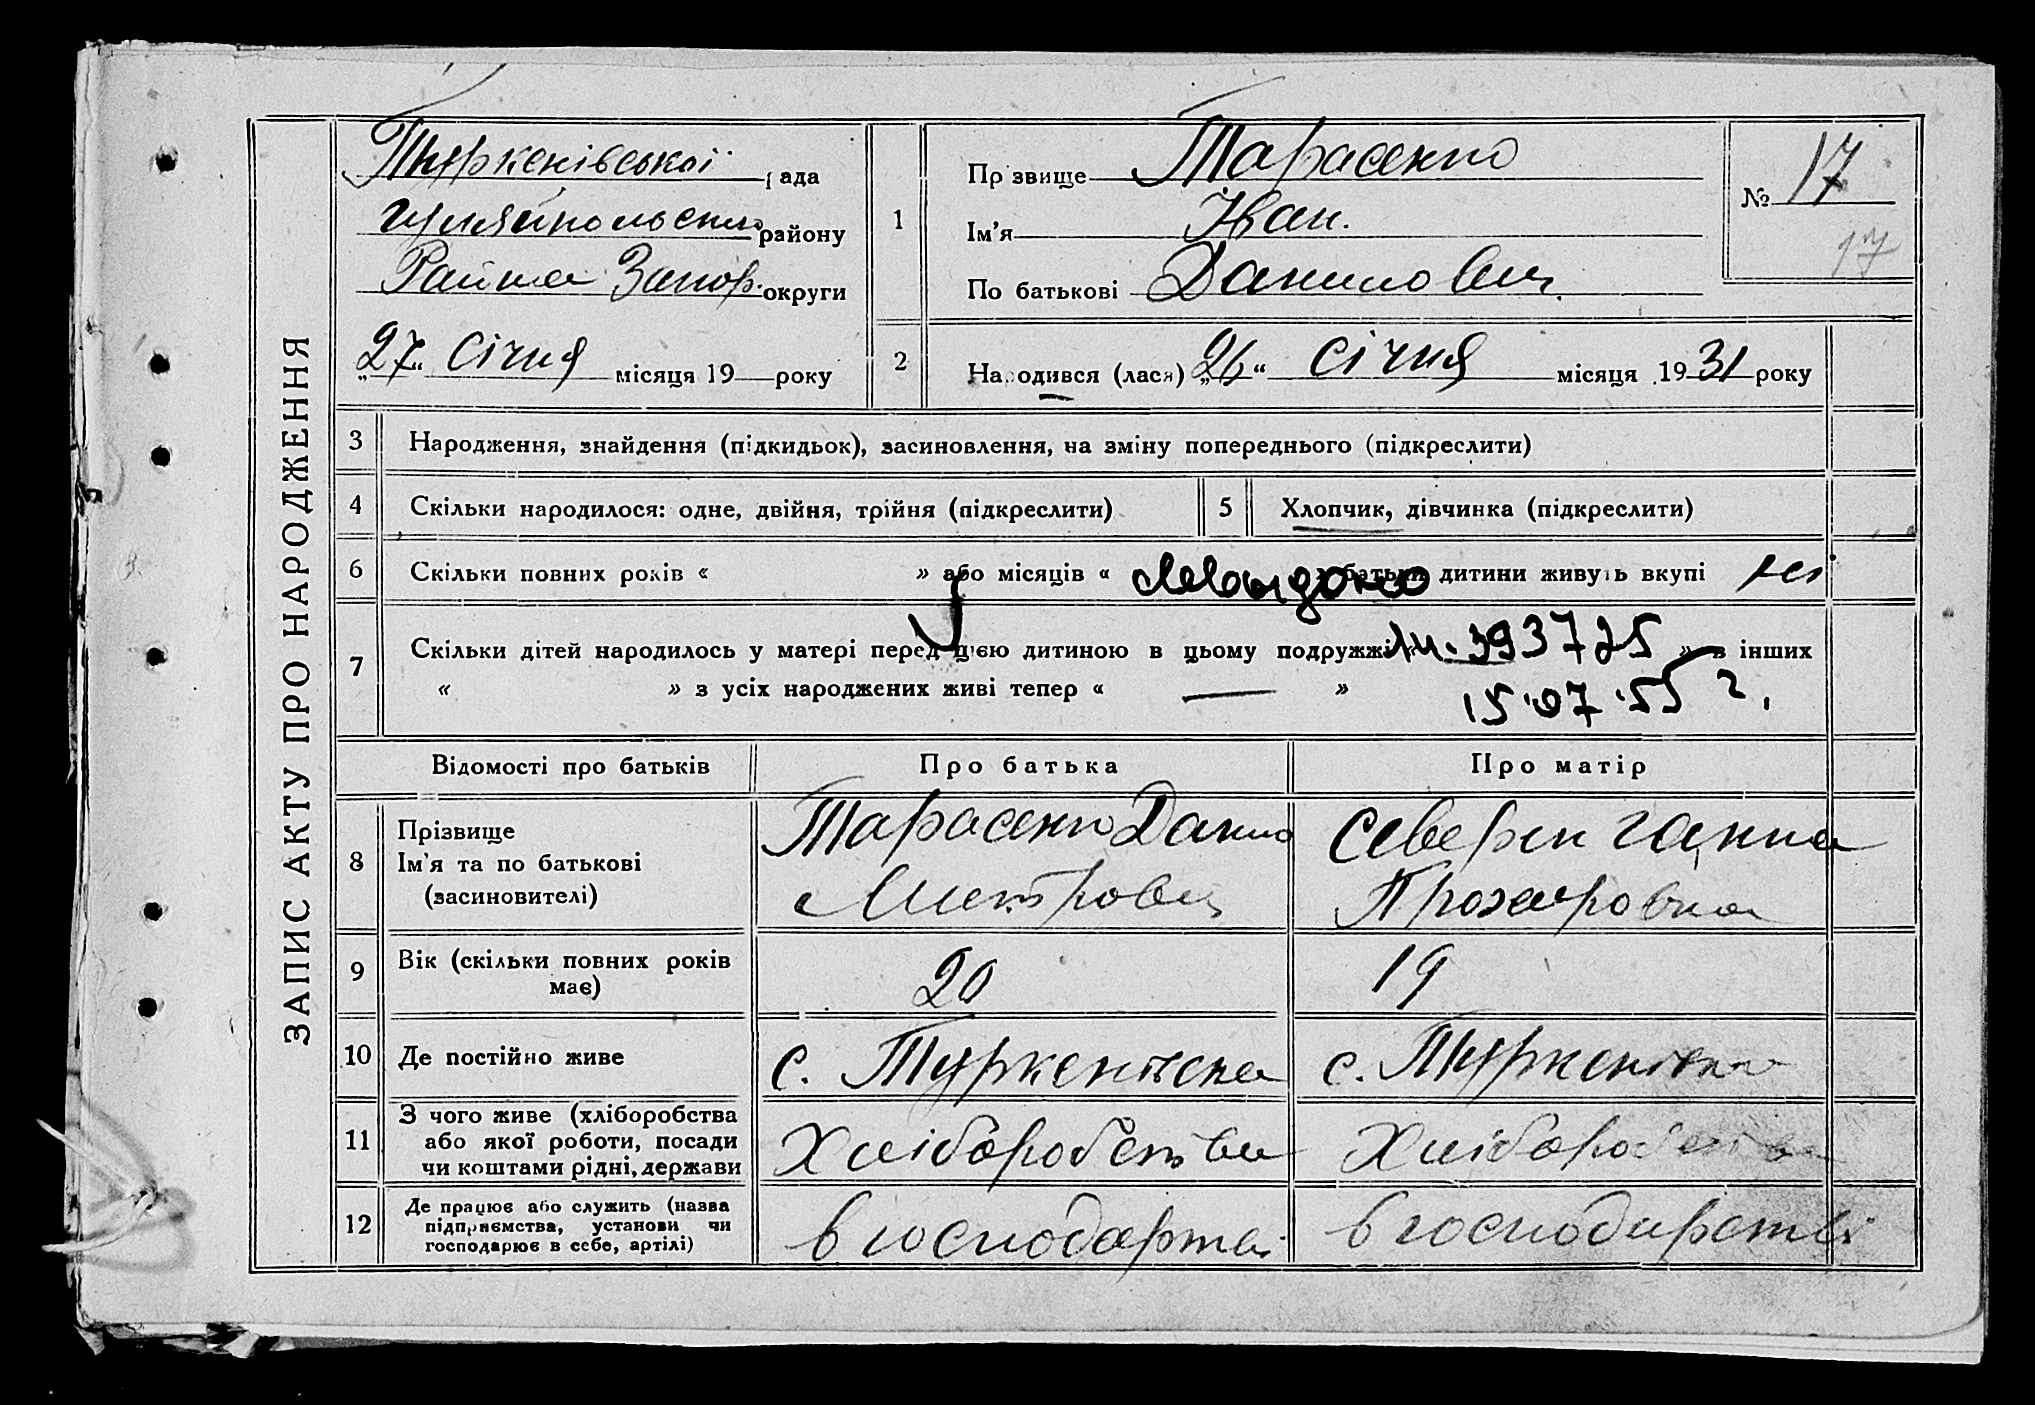 ЗАПИС АКТУ ПРО НАРОДЖЕННЯ
Туркенівської рада
Гуляйпольського району
Района Запор. округи
„27“ Січня місяця 19 року
1
Прізвище Тарасенко
Ім'я Іван.
По батькові Данилович.
№ 17
17
2
Народився (лася) „26“ Січня місяця 1931 року
3 Народження, знайдення (підкидьок), засиновлення, на зміну попереднього (підкреслити)
4 Скільки народилося: одне, двійня, трійня (підкреслити)
5 Хлопчик, дівчинка (підкреслити)
6 Скільки повних років « » або місяців « » батьки дитини живуть вкупі
7 Скільки дітей народилось у матері перед цією дитиною в цьому подружжі « » в інших
« » з усіх народжених живі тепер « — »
393725
15.07.55 г.
Відомості про батьків
Про батька
Про матір
8 Прізвище
Ім'я та по батькові
(засиновителі)
Тарасенко Данило
Митрович
Северин Ганна
Прохаровна
9 Вік (скільки повних років
має)
20
19
10 Де постійно живе
с. Туркенівка
с. Туркенівка
11 З чого живе (хліборобства
або якої роботи, посади
чи коштами рідні, держави
Хліборобства
Хліборобства
12 Де працює або служить (назва
підприємства, установи чи
господарює в себе, артілі)
в господарстві
в господарстві